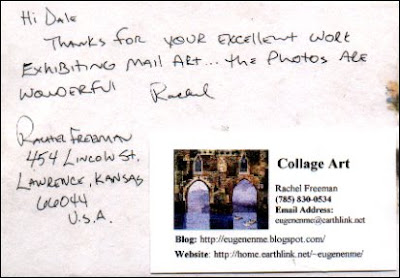 Hi Dale
Thanks for your excellent work
exhibiting mail art... the photos are
wonderful Rachel
Rachel Freeman
454 Lincoln St.
Lawrence, Kansas
66044
U.S.A.
Collage Art
Rachel Freeman
(785) 830-0534
Email Address:
eugenenme@earthlink.net
Blog: http://eugenenme.blogspot.com/
Website: http://home.earthlink.net/~eugenenme/